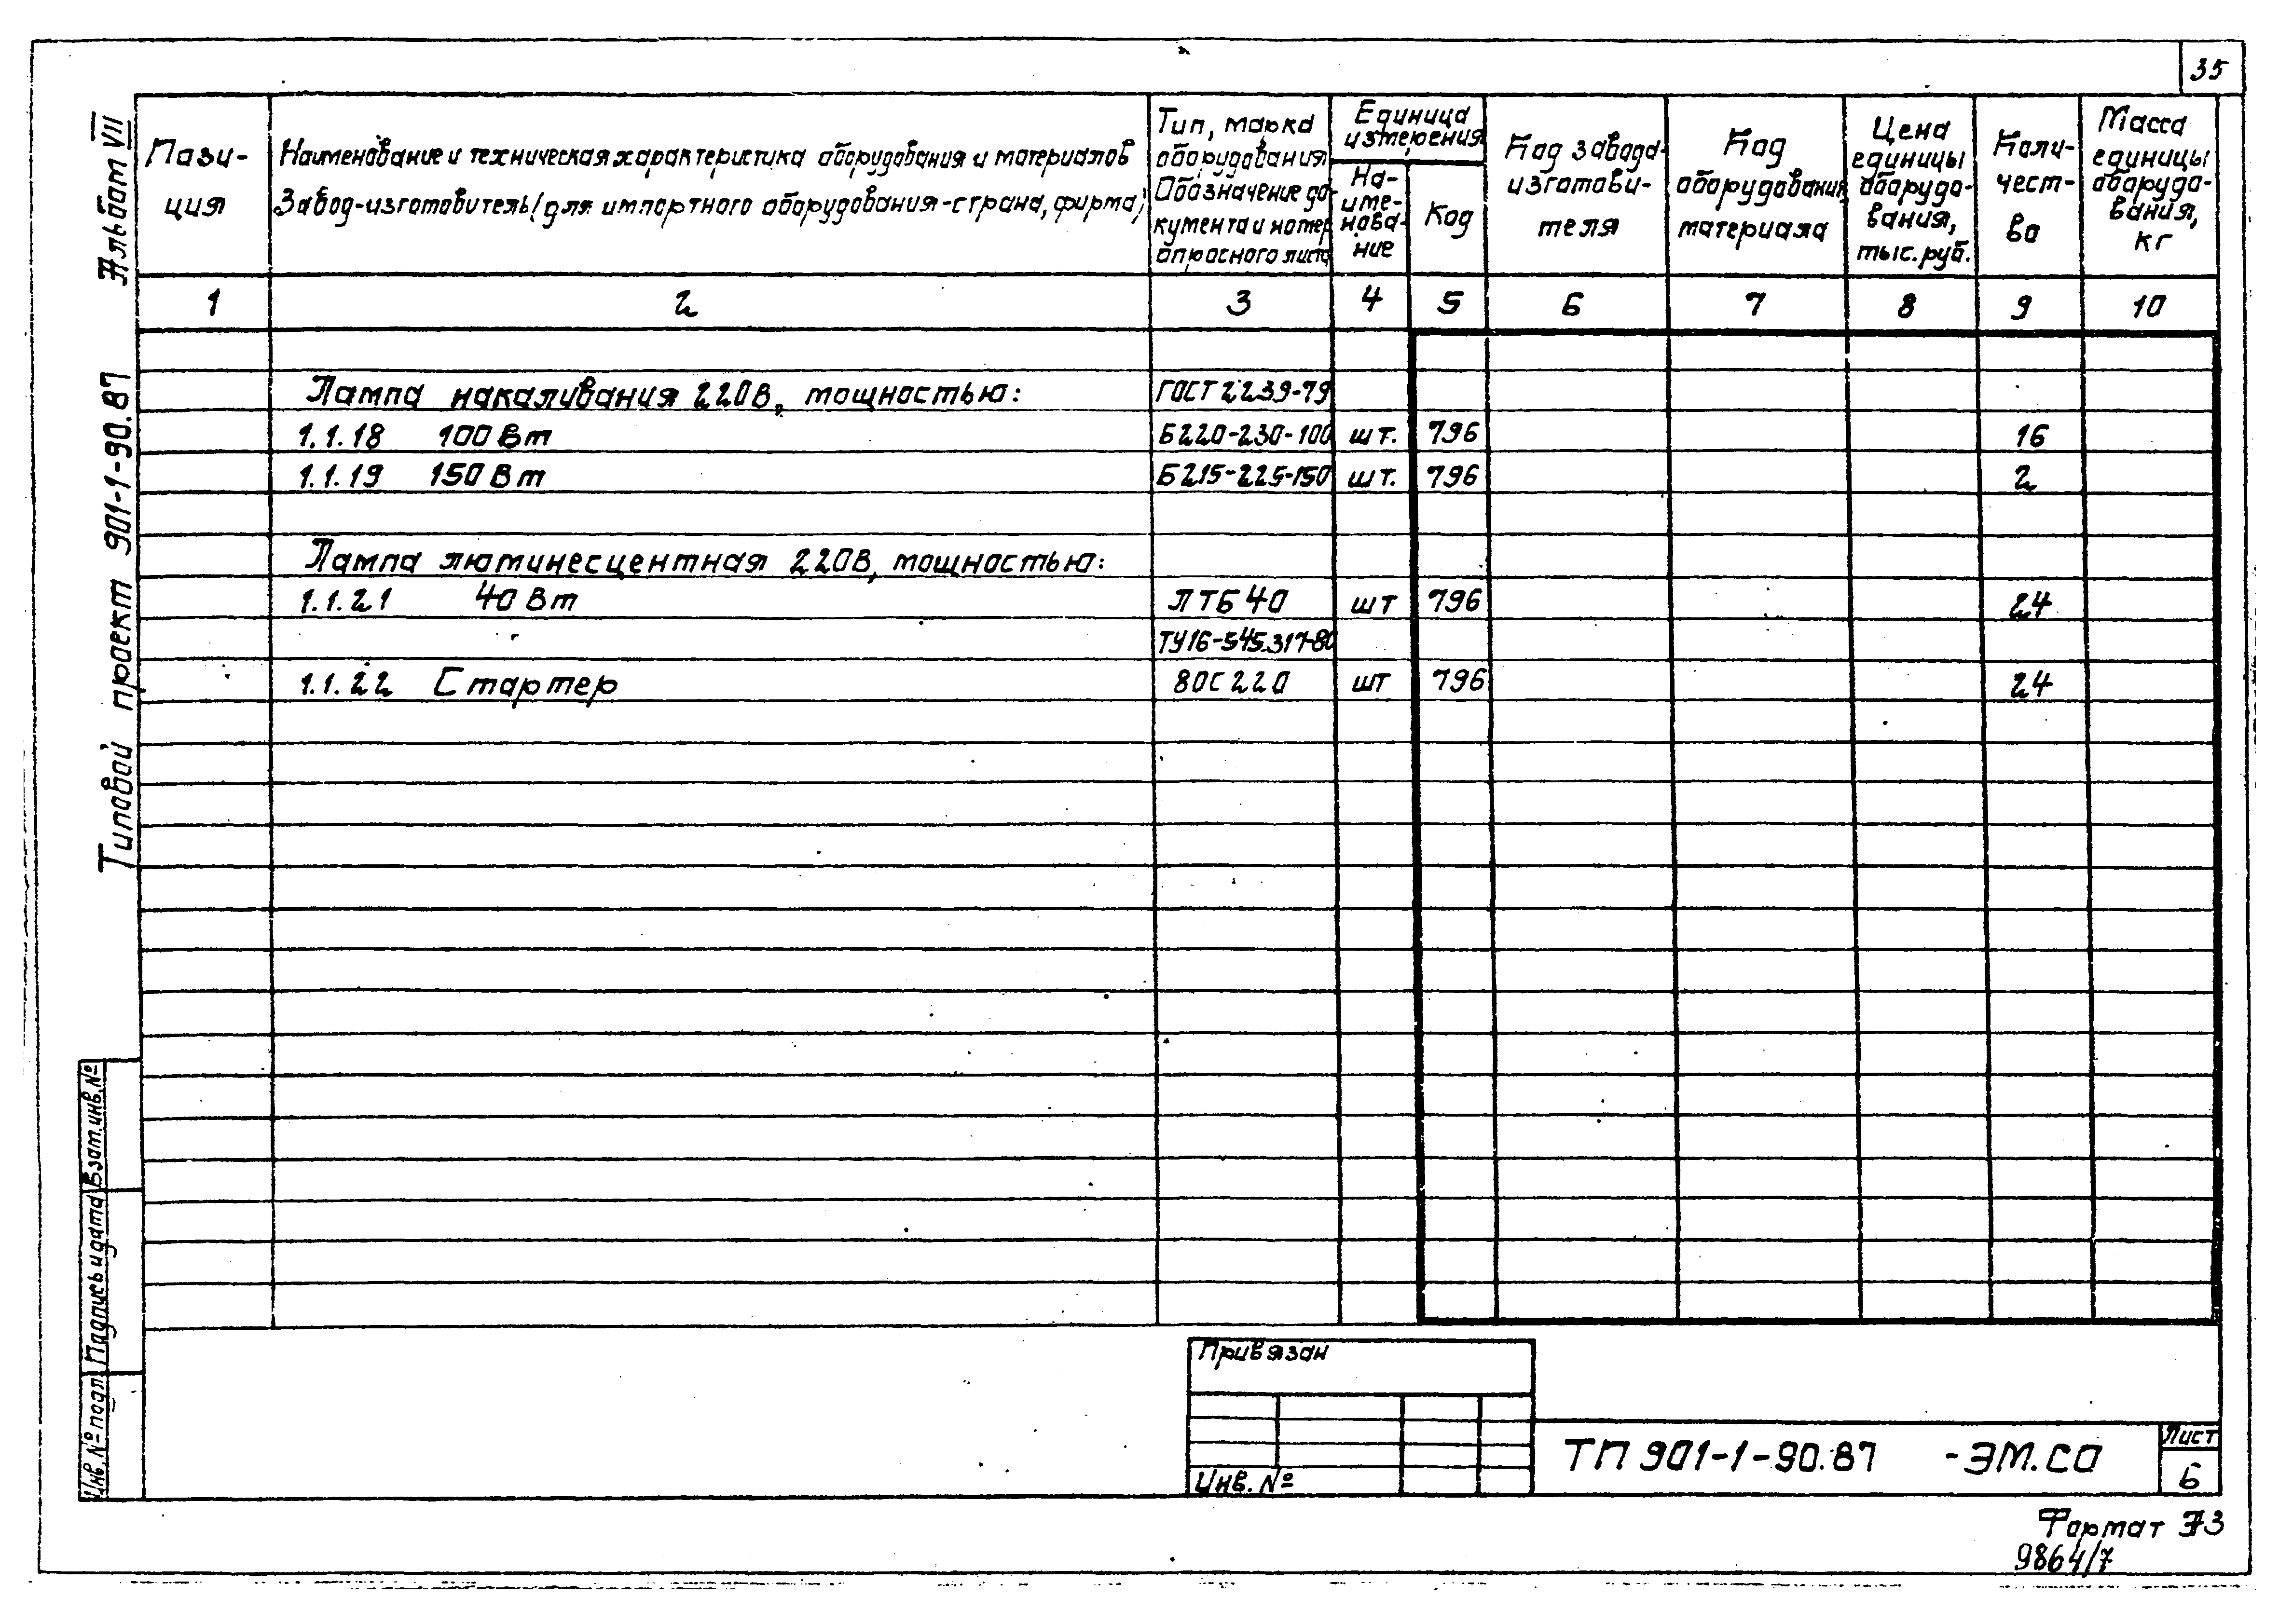 35
Альбом VII
Типовой проект 901-1-90.87
Пози-
ция
Наименование и техническая характеристика оборудования и материалов
Завод-изготовитель (для импортного оборудования-страна, фирма)
Тип, марка
оборудования
Обозначение до-
кумента и номер
опросного листа
Единица
измерения
На-
име-
нова-
ние
Код
Код завода-
изготови-
теля
Код
оборудования,
материала
Цена
единицы
оборудо-
вания,
тыс. руб.
Коли-
чест-
во
Масса
единицы
оборудо-
вания,
кг
1 2 3 4 5 6 7 8 9 10
Лампа накаливания 220В, мощностью: ГОСТ 2239-79
1.1.18 100 Вт Б220-230-100 шт. 796 16
1.1.19 150 Вт Б215-225-150 шт. 796 2
Лампа люминесцентная 220В, мощностью:
1.1.21 40 Вт ЛТБ 40 шт 796 24
ТУ16-545.317-80
1.1.22 Стартер 80С220 шт 796 24
Взам. инв. №
Подпись и дата
Инв. № подл.
Привязан
Инв. №
ТП 901-1-90.87 -ЭМ.СО
Лист
6
Формат А3
9864/7